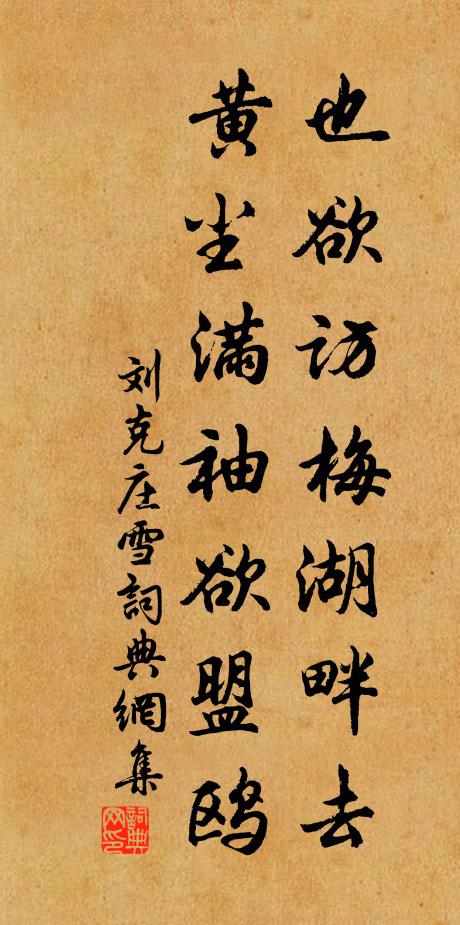 也欲访梅湖畔去
黄尘满袖欲盟鸥
刘克庄雪詞典網集
詞典網印